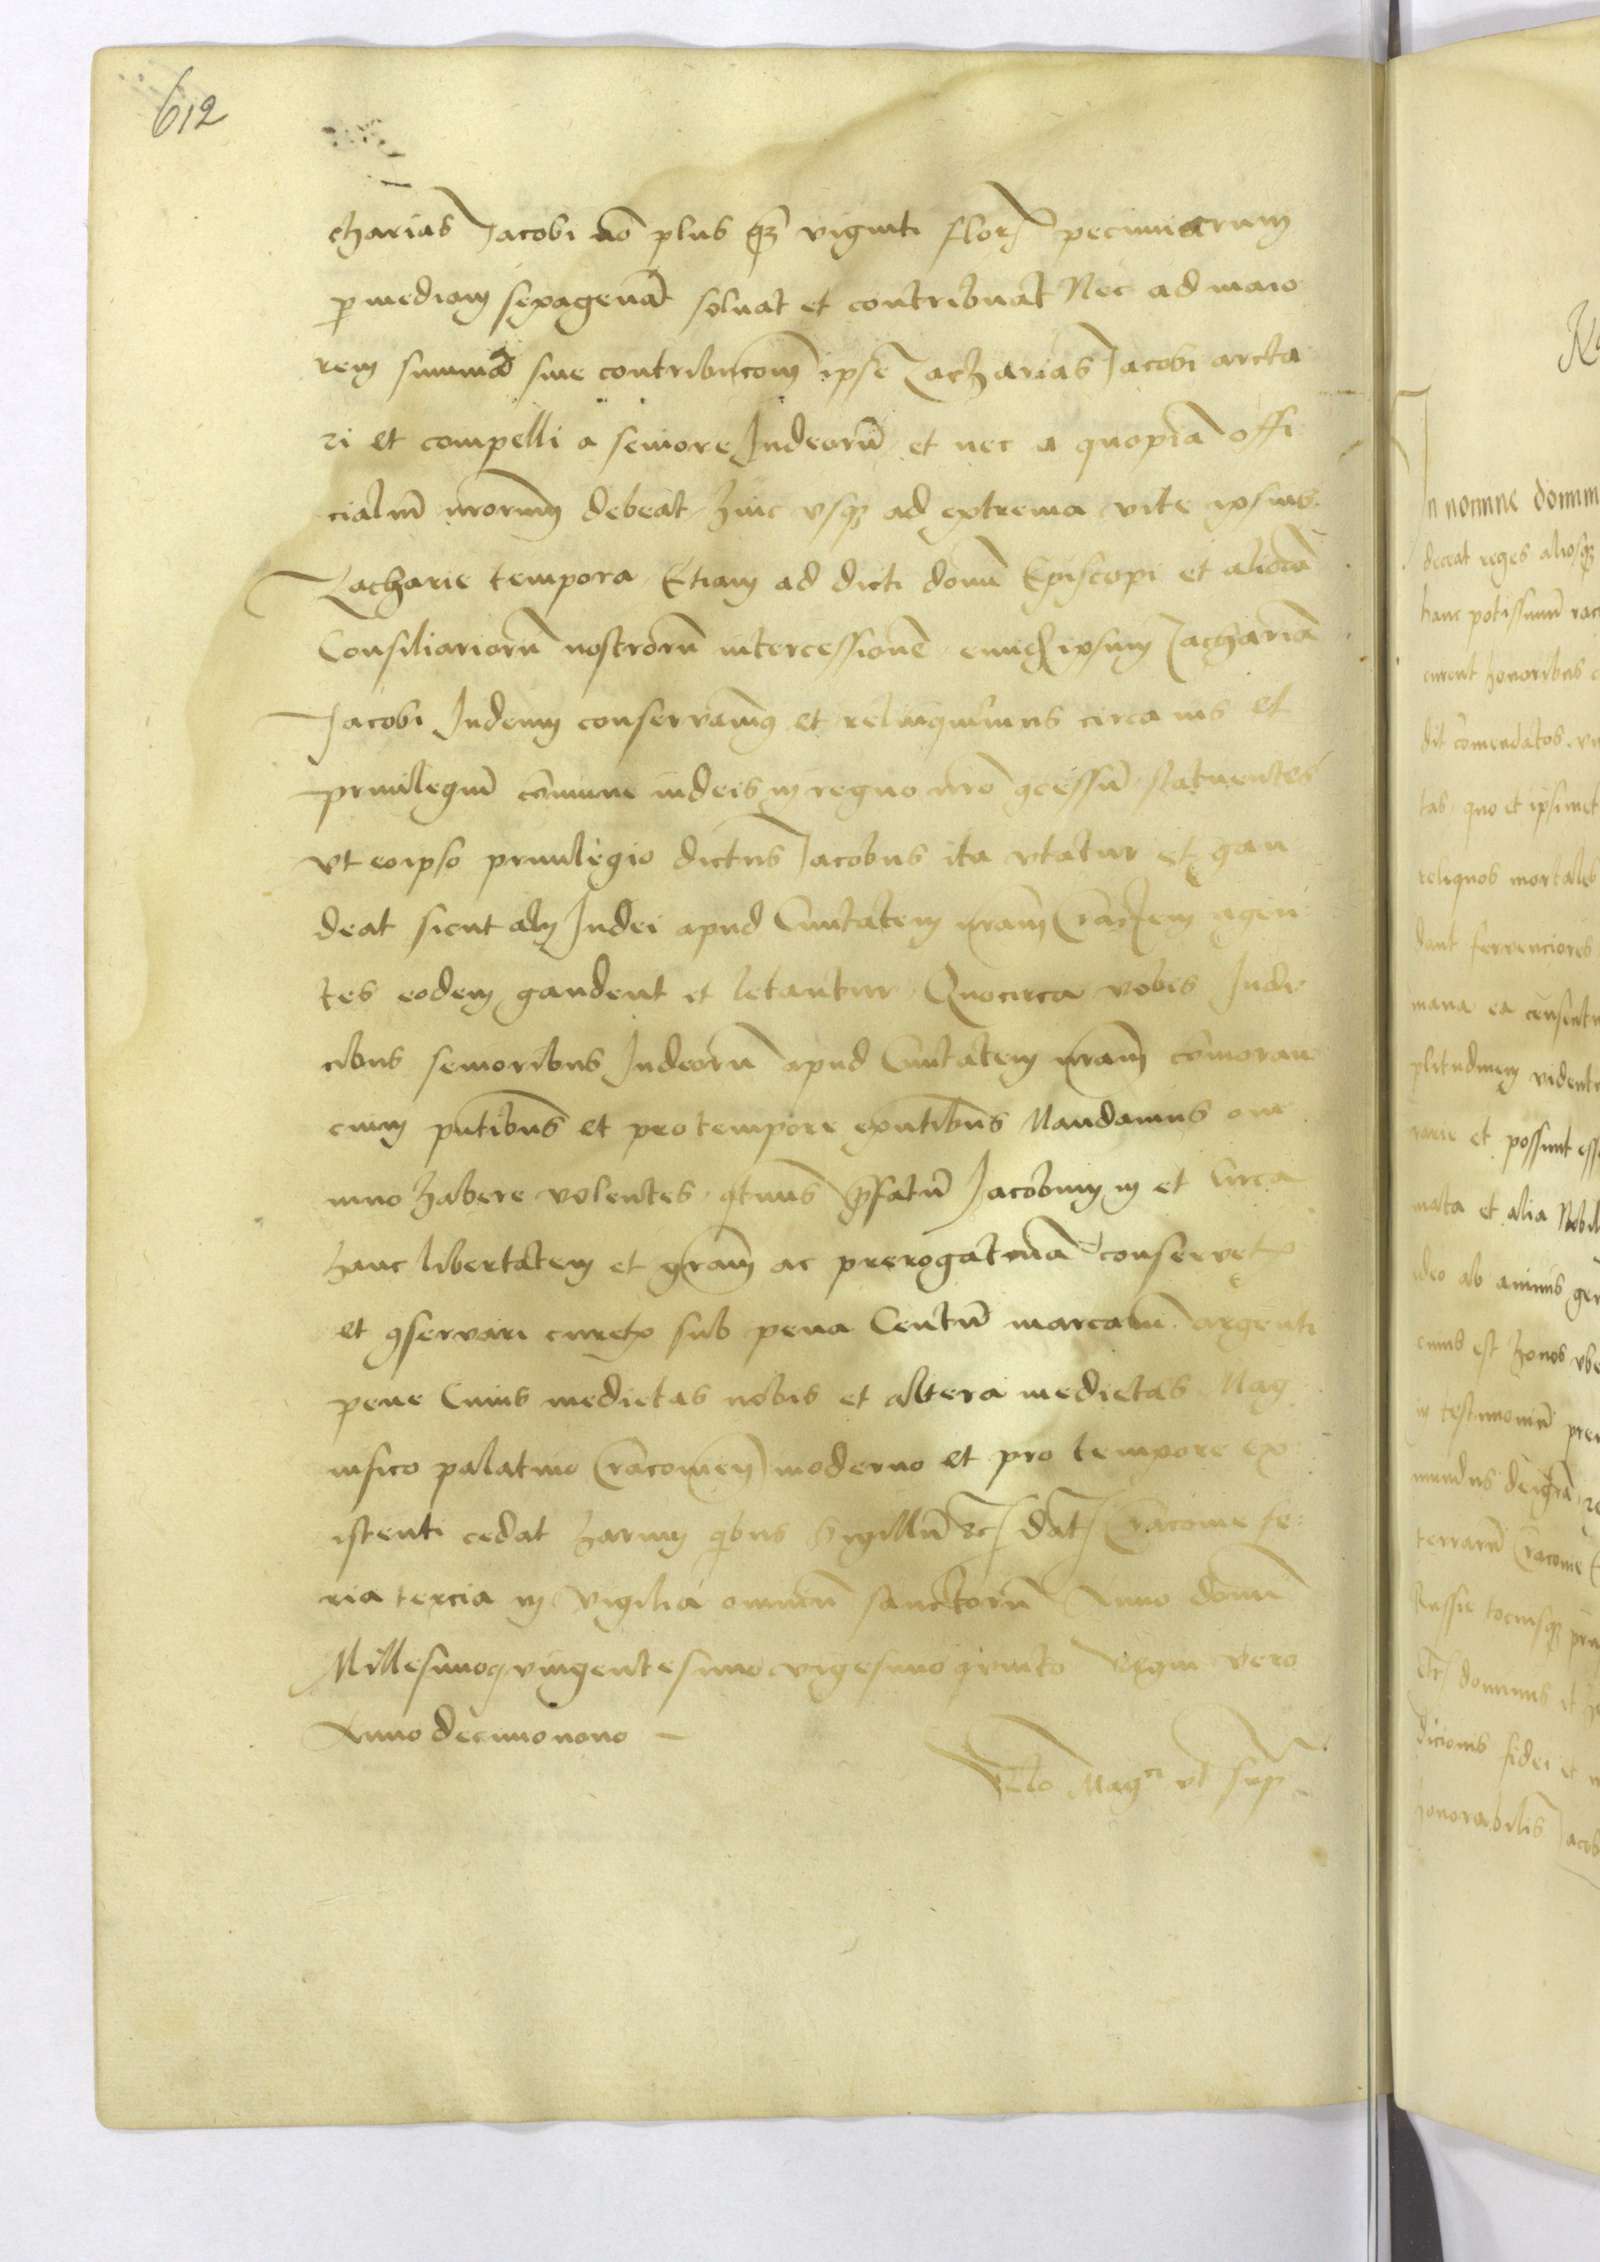 612
charias Jacobi nō plus qȝ viginti flor pecuniarum
p mediam sexagenā soluat et contribuat Nec ad maio
rem summā siue contribucoēm ipse Zacharias Jacobi arcta
ri et compelli a seniore Judeorū et nec a quopiā offi
cialiū nrorum debeat hinc vsqȝ ad extrema vite ipsius
Zacharie tempora Etiam ad dicti domī Episcopi et
Consiliariorū nostrorū intercessionē ipsum Zachariā
Jacobi Judeum conservamus et relinquimus circa ius et
priuilegiū cōmune iudeis in regno nrō ꝯcessū statuentes
vt eoipso priuilegio dictus Jacobus ita vtatur et gau
deat sicut alij Judei apud Ciuitatem nram Crac͞ iem agen
tes eodem gaudent et letantur Quocirca vobis Judi
cibus senioribus Judeorū apud Ciuitatem nram cōmoran
cium pntibus et pro tempore exntibus Mandamus om
nino habere volentes qtenus pfatū Jacobum in et Circa
hanc libertatem et gram ac prerogatiuā conseruetis
et ꝯservari curetis sub pena Centū marcarū argenti
pene Cuius medietas nobis et altera medietas Mag
nifico palatino Cracouien moderno et pro tempore ex
istenti cedat harum qbus Sigillū &c Dat Cracouie fe
ria tercia in vigilia omniū sanctorū Anno domī
Millesimoqvingentesimo vigesimo qvinto Regni vero
Anno decimo nono
Rlo Magci vt sup
In nomine domini
deceat reges aliosqȝ
hanc potissimū rac
curent honoribus
dit cōmendatos
tas quo et ipsimet
reliquos mortales
dant fervenciores
mana ea censentu
plitudinem videntu
et possunt esse
mata et alia Nobil
ideo ab animis
cuius est honos vbe
in testimoniū
mundus deigrā re
terrarū Cracouie
Russie tociusqȝ pru
etc dominus et
dicionis fidei et
honorabilis Jacob